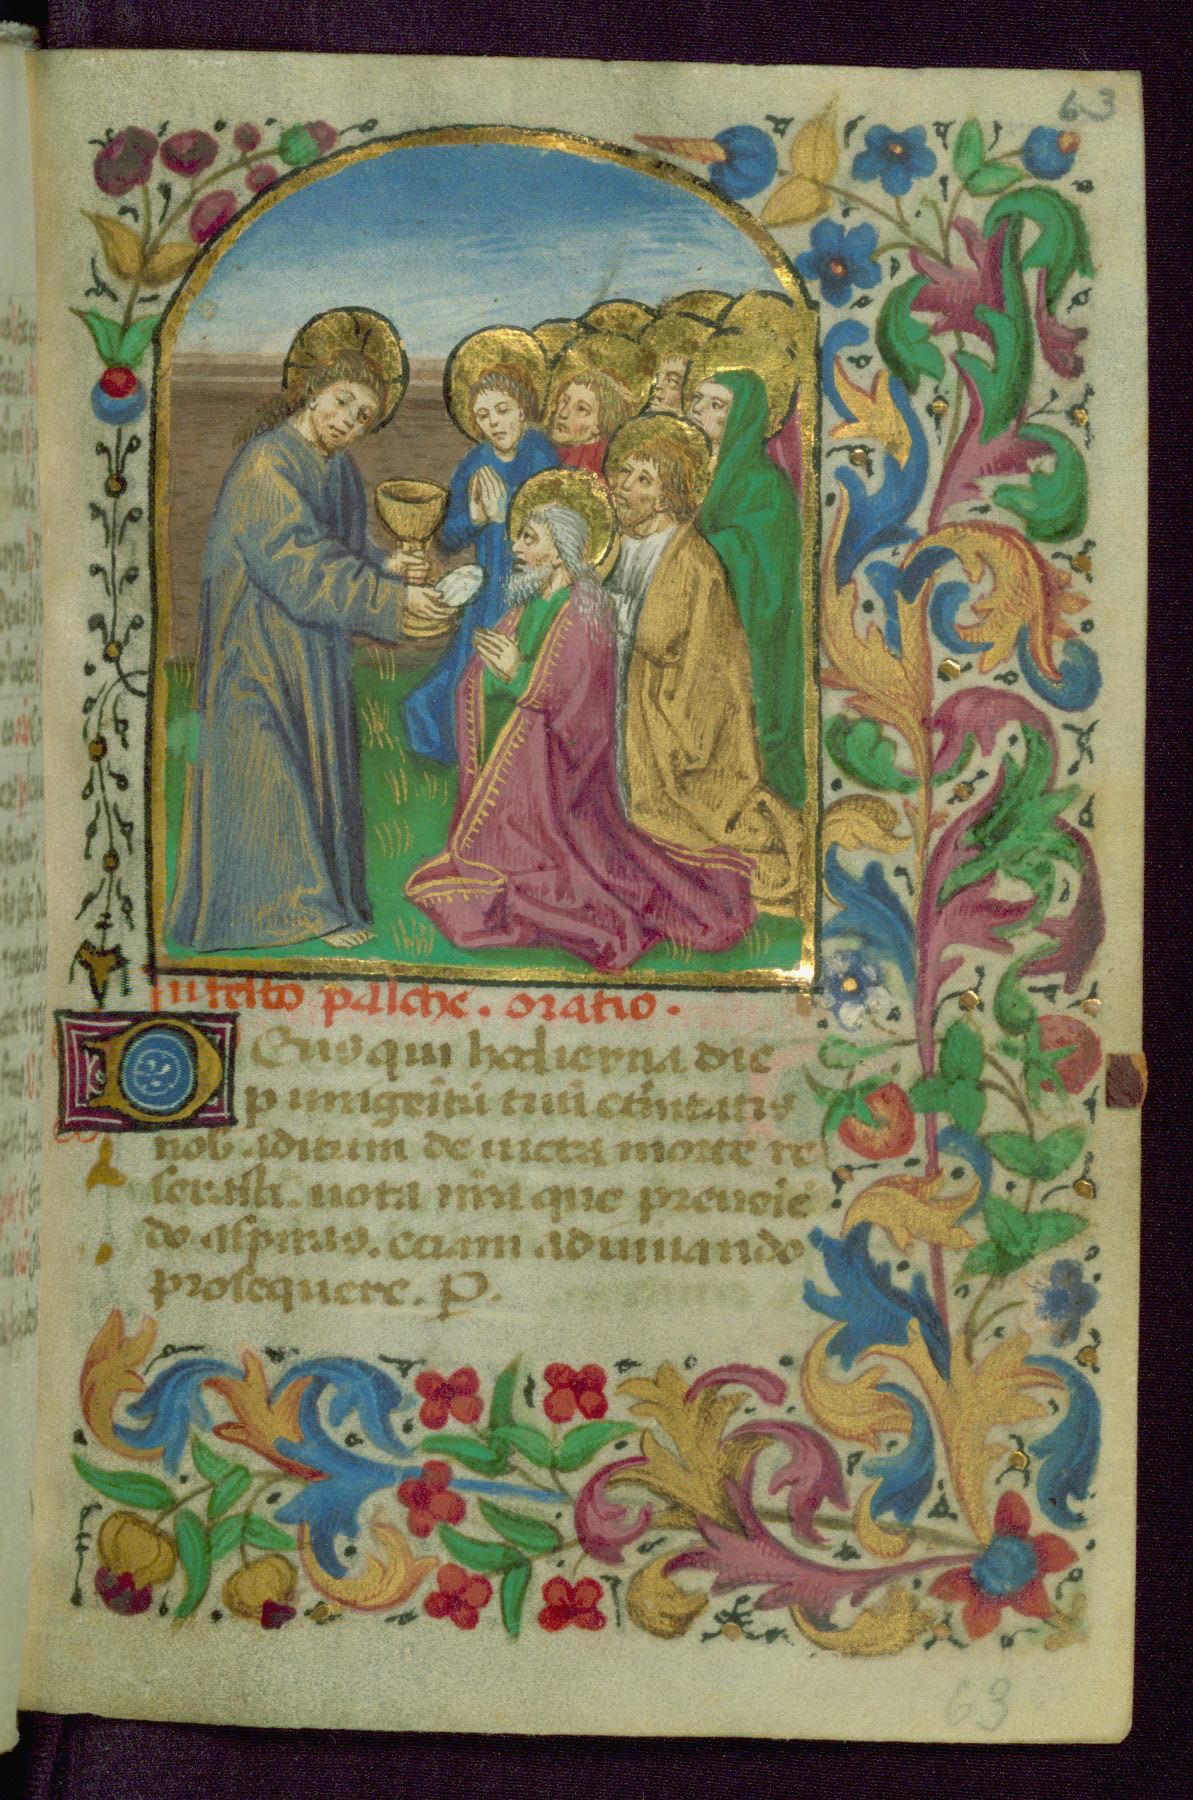 63
In festo pasche. oratio.
Deus qui hodierna die
p unigeītū tuū etīntatis
nob aditum de uicta morte re
serasti. uota nr̄a que preueiē
do aspiras. eciam adiuuando
prosequere. P.
63